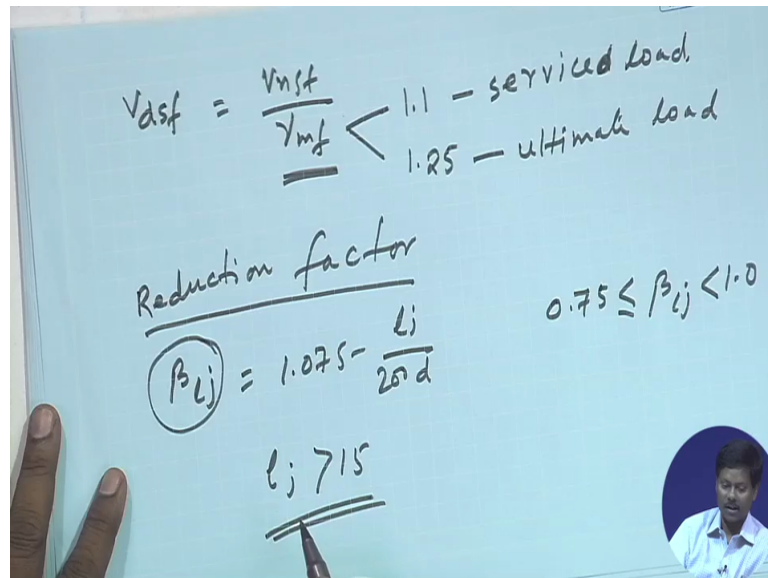 Vdsf = Vnsf / γmf < 1.1 - serviced load.
1.25 - ultimate load
Reduction factor
βlj = 1.075 - lj / 200 d
0.75 ≤ βlj < 1.0
lj > 15